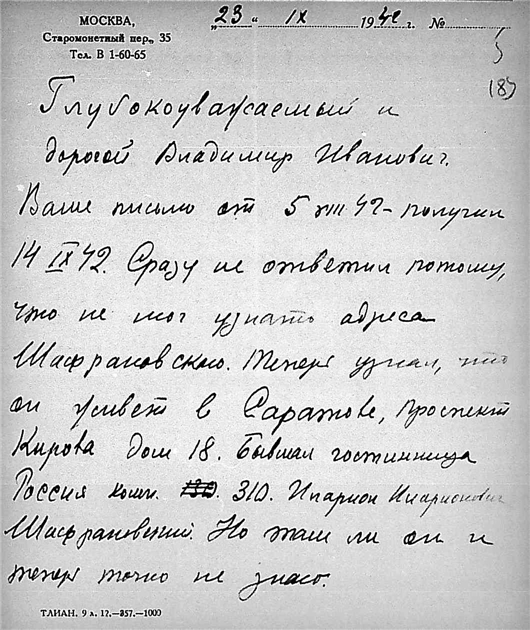 МОСКВА,
Старомонетный пер., 35
Тел. В 1-60-65
„23“ IX 1942 г. №
(85
Глубокоуважаемый и
дорогой Владимир Иванович.
Ваше письмо от 5 VIII 42 - получил
14 IX 42. Сразу не ответил потому,
что не мог узнать адреса
Шафрановского. Теперь узнал, что
он живет в Саратове, проспект
Кирова дом 18. Бывшая гостинница
Россия комн. 310. Иларион Иларионович
Шафрановский. Но там ли он и
теперь точно не знаю.
ТЛИАН. 9 л. 12.—357.—1000